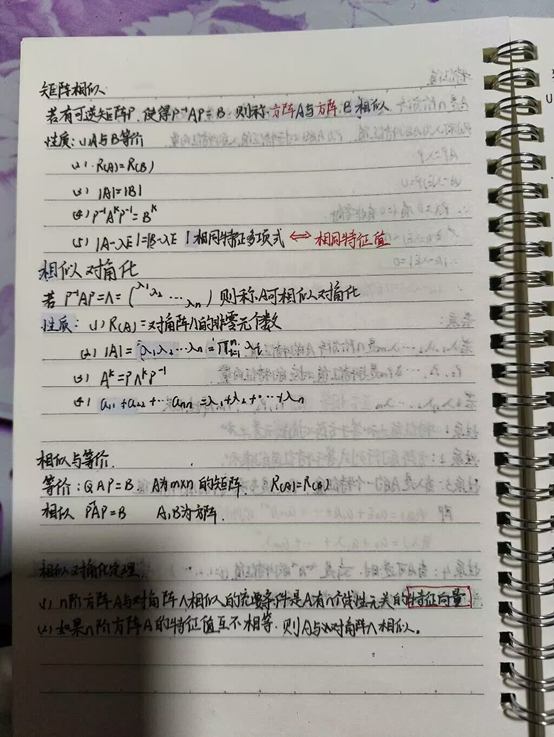 矩阵相似
若有可逆矩阵P,使得P⁻¹AP=B,则称方阵A与方阵B相似
性质:(1)A与B等价
(2) R(A)=R(B)
(3) |A|=|B|
(4) P⁻¹AᵏP⁻¹=Bᵏ
(5) |A-λE|=|B-λE| 相同特征多项式 ⇔ 相同特征值
相似对角化
若 P⁻¹AP=Λ=(λ₁ λ₂ ⋯ λₙ) 则称A可相似对角化
性质: (1) R(A)=对角阵Λ的非零元个数
(2) |A|=λ₁λ₂⋯λₙ=∏ⁿᵢ₌₁λᵢ
(3) Aᵏ=PΛᵏP⁻¹
(4) a₁₁+a₂₂+⋯aₙₙ=λ₁+λ₂+⋯+λₙ
相似与等价.
等价:QAP=B A为m×n的矩阵. R(A)=R(B)
相似 P⁻¹AP=B A,B为方阵.
相似对角化定理
(1) n阶方阵A与对角阵Λ相似的充要条件是A有n个线性无关的特征向量
(2) 如果n阶方阵A的特征值互不相等,则A与对角阵Λ相似。